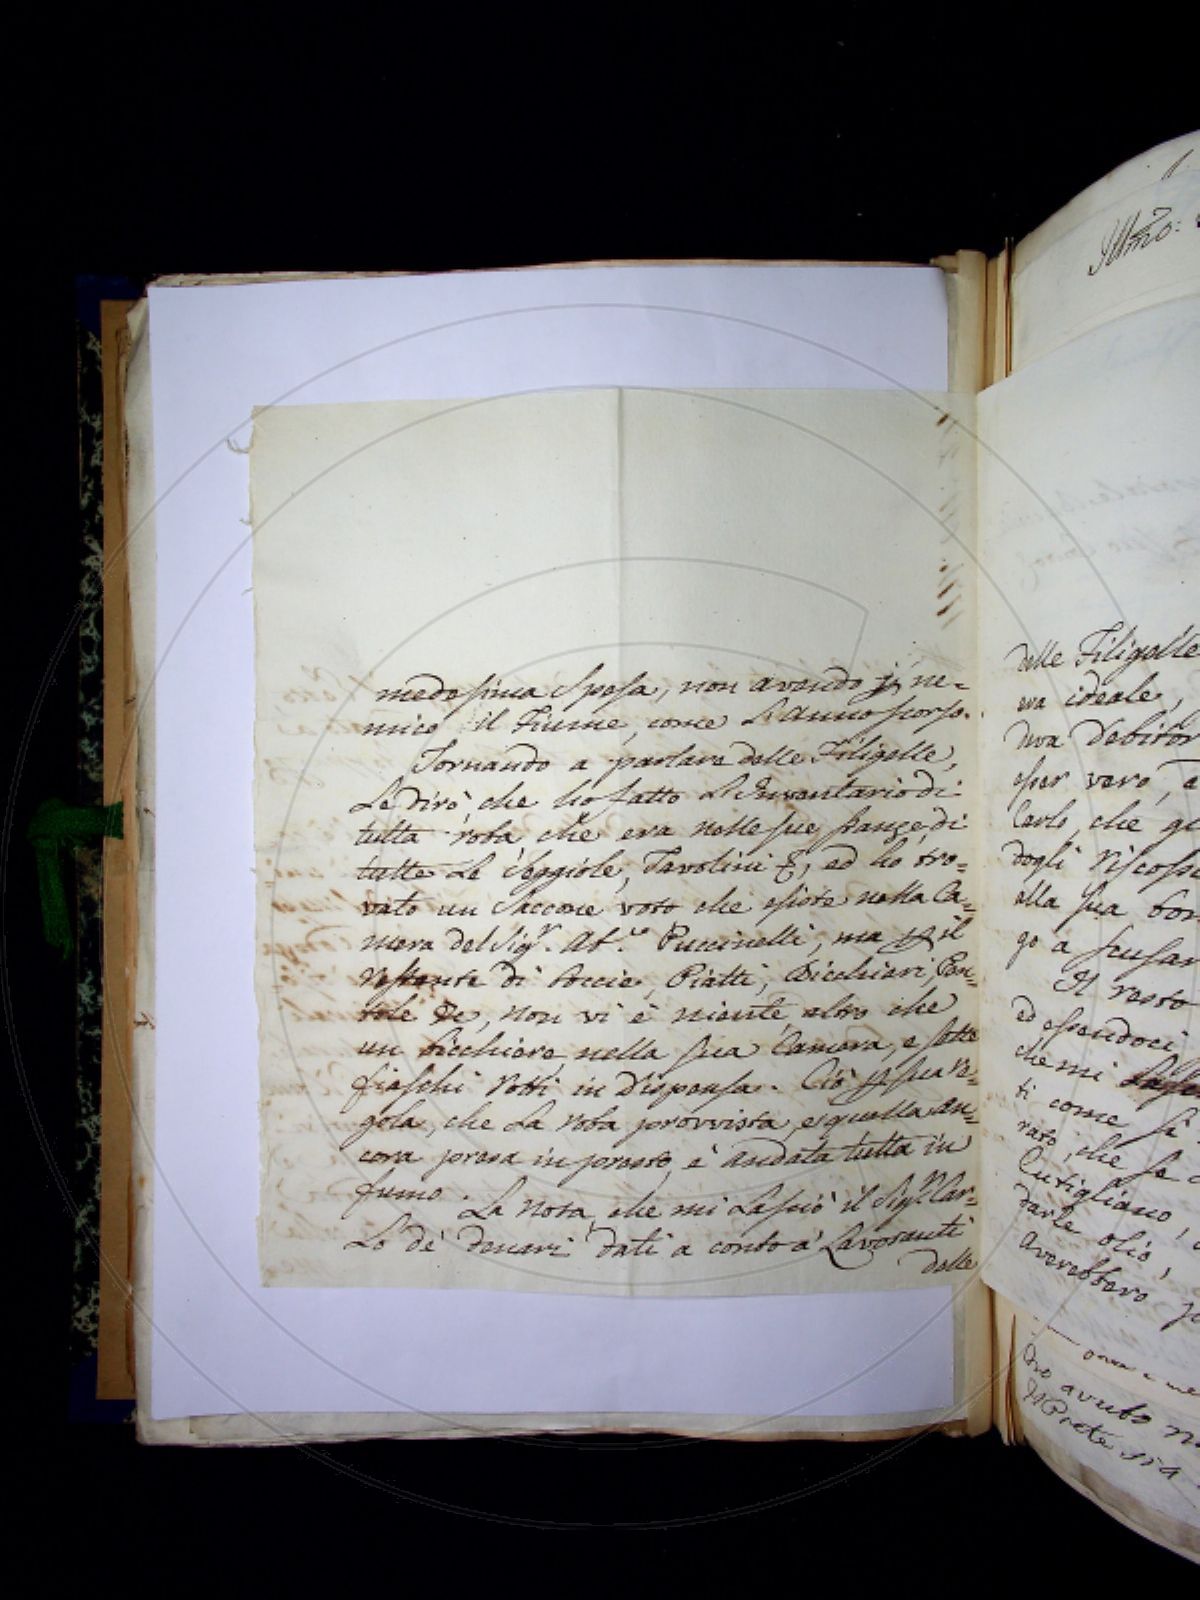 medesima Spesa, non avendo p ne=
mico il Fiume, come L'anno scorso.
Tornando a parlare delle Filigelle,
Le dirò, che ho fatto L'Inventario di
tutta roba, che era nelle sue stanze, di
tutte Le Seggiole, Tavolini &, ed ho tro=
vato un Saccone voto che esiste nella Ca=
mera del Sigr. Ab.e Puccinelli, ma p il
restante di Stoccie, Piatti, Bicchieri, Pen=
tole &c, non vi è niente altro che
un bicchiere nella sua Camera, e sette
fiaschi rotti in Dispensa. Ciò p sua re=
gola, che La roba provvista, e quella an=
cora presa in presto, è andata tutta in
fumo. La nota, che mi Lasciò il Sigr. Car=
Lo de' denari dati a conto a' Lavoranti
delle
Illmo:
delle Filigelle
era ideale,
diva Debitor
esser vero, e
Carlo, che
dogli riscoss
alla sua bon
go a scusar
Il resto
ed essendoci
che mi Lasci
ti come si
rato, che se
Cutigliano,
darle olio,
averebbero
ho avuto
Prete sia